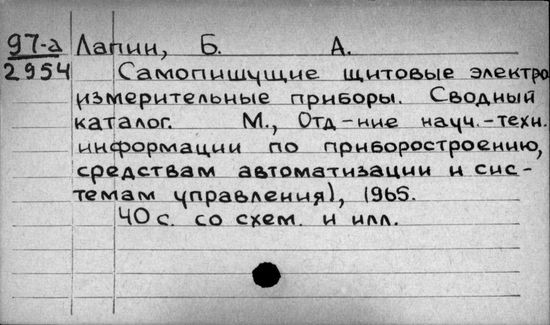 97-а Лапин, Б. А.
2954 Самопишущие щитовые электро
измерительные приборы. Сводный
каталог. М., Отд-ние науч.-техн.
информации по приборостроению,
средствам автоматизации и сис-
темам управления), 1965.
40 с. со схем. и илл.